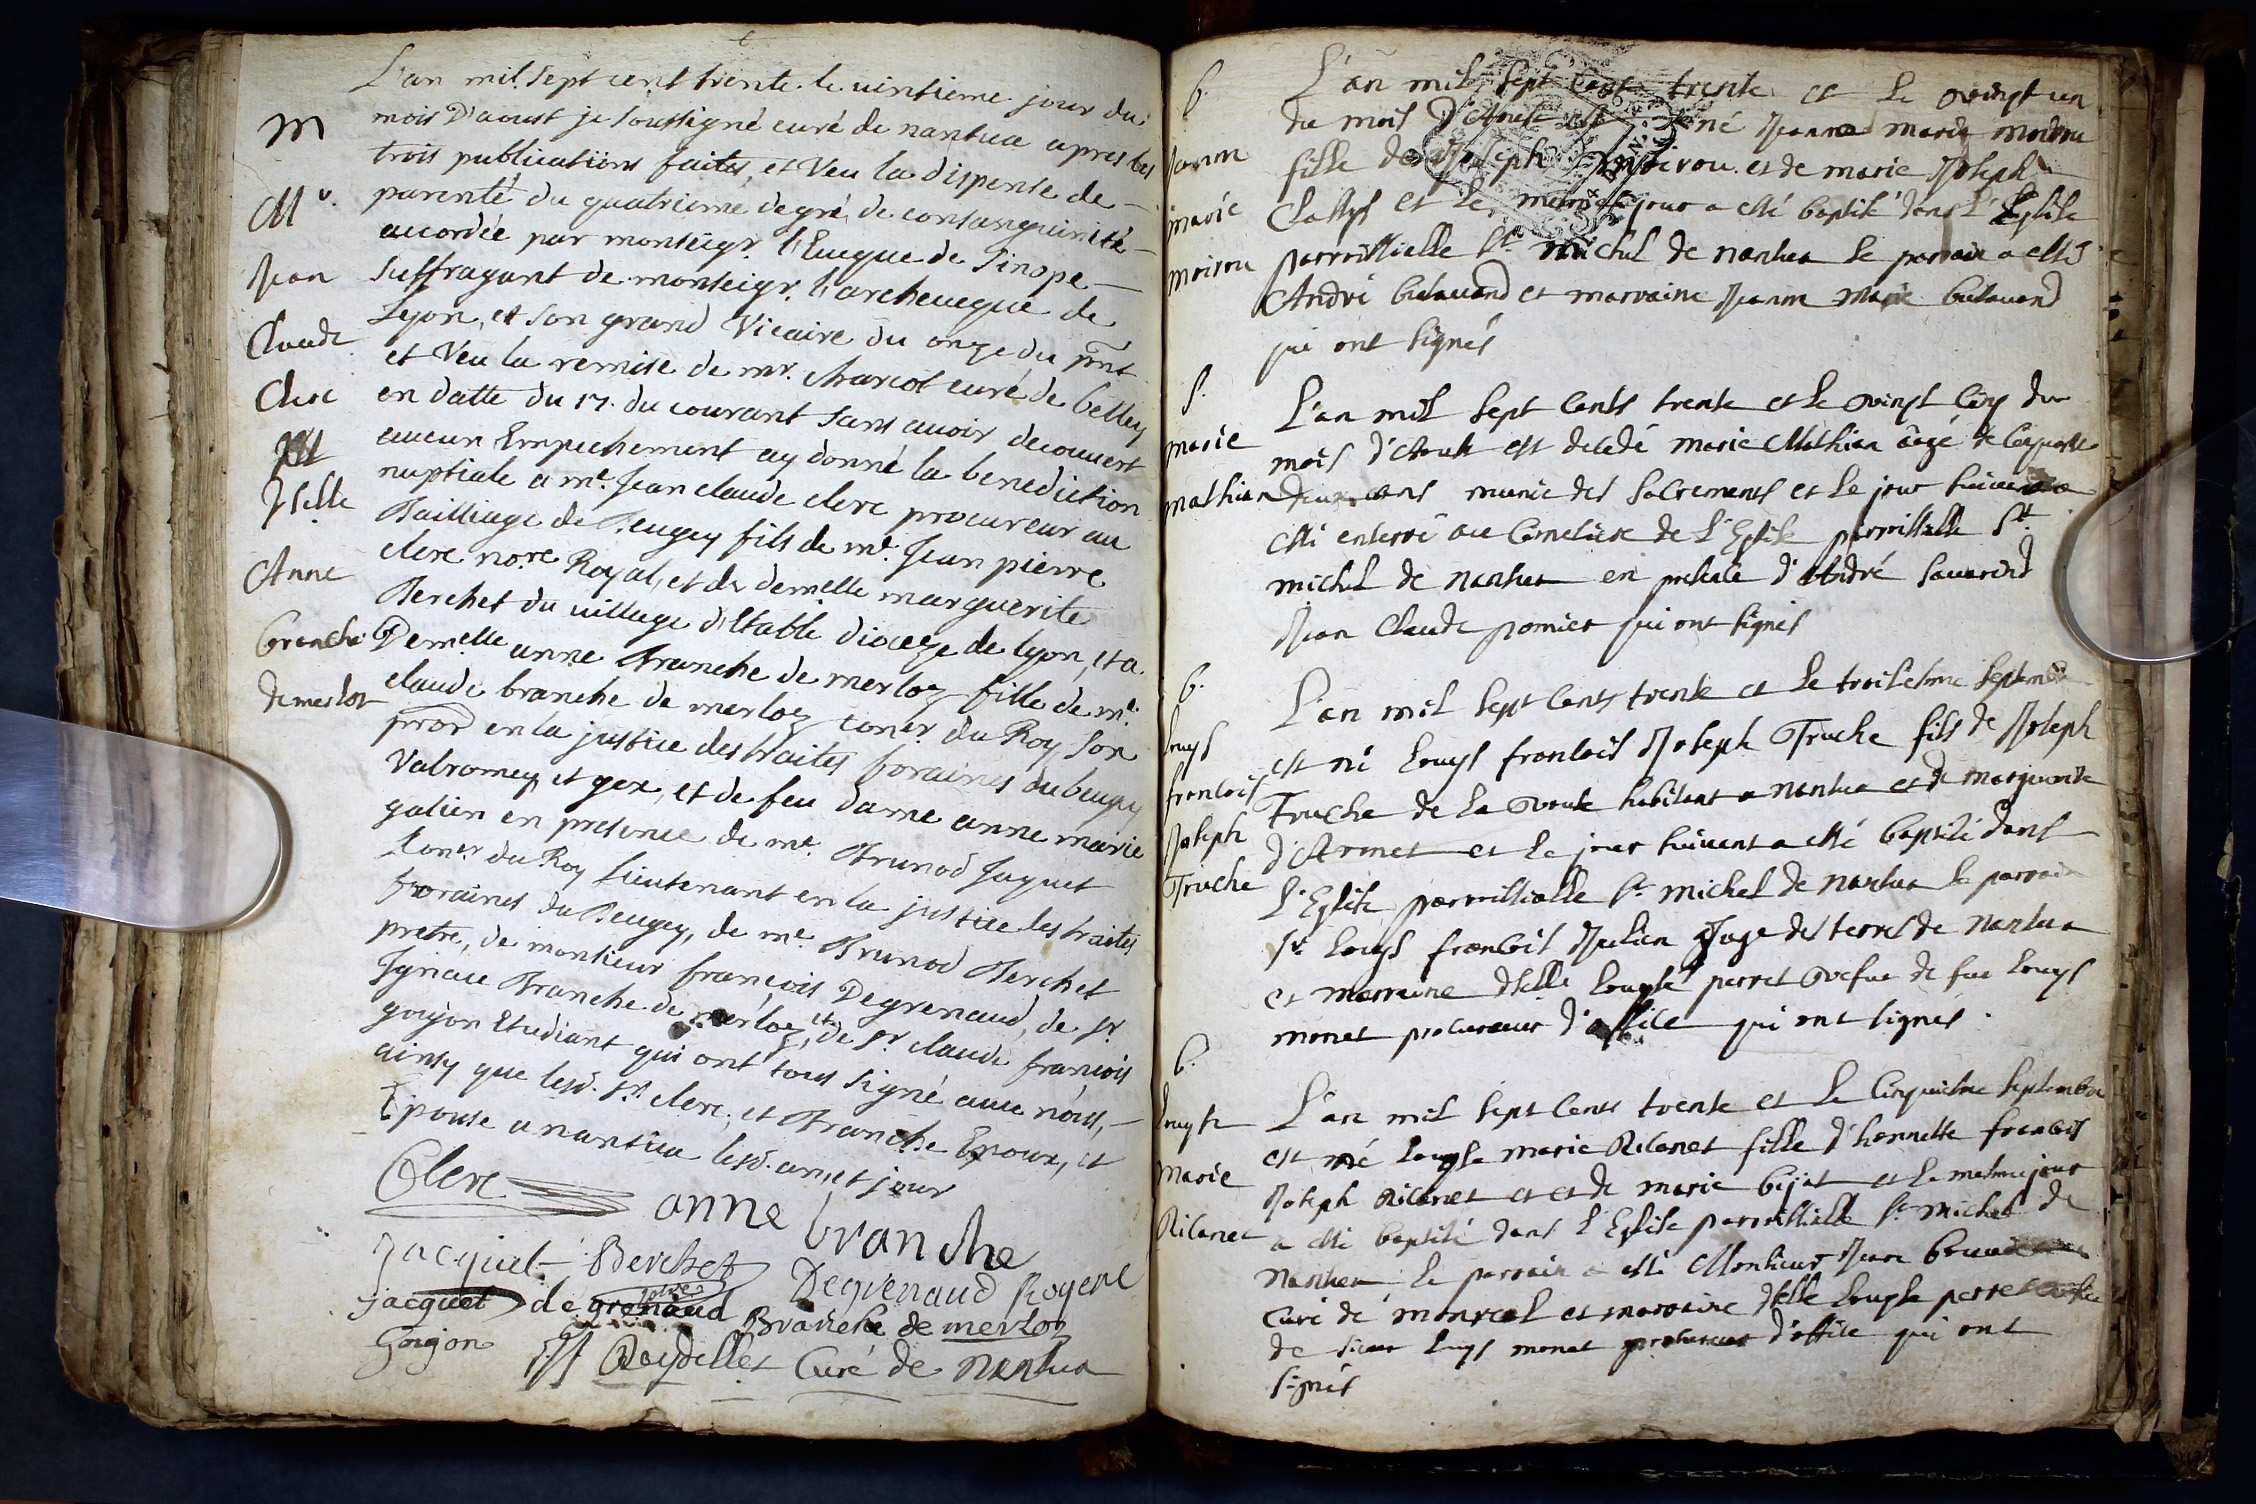 L'an mil sept cent trente le vintieme jour du
mois D'aoust je soussigné curé de nantua apres les
trois publications faites, et Veu la dispense de
parenté du quatrieme degré de consanguinité
accordée par monseigr. l'Eueque de Sinope
suffragant de monseigr. l'archeueque de
Lyon, et son grand Vicaire du onze du pnt
et Veu la remise de mr. charcot curé de belley
en datte du 17. du courant sans auoir decouuert
aucun Empechement ay donné la benediction
nuptiale a me. Jean claude clerc procureur au
Bailliage de Beugey fils de me. Jean pierre
clerc nore. Royal, et de demelle marguerite
Berchet du uillage d'Etable dioceze de lyon, et a
Demelle anne Branche de merloz fille de me.
claude branche de merloz coner. du Roy son
pror en la justice des traites foraines du beugey
Valromey et gex, et de feu dame anne marie
galien en presence de me. Brunod Jaquet
Coner du Roy lieutenant en la justice des traites
foraines du Beugey, de me Brunod Berchet
pretre, de monsieur françois Degrenaud, de sr.
Ignace Branche de merloz, et de sr. claude françois
goujon Etudiant qui ont tous signé auec nous,
ainsy que lesd. sr. clerc, et Branche Epoux, et
Epouse a nantua lesd. an, et jour
Clerc
anne branche
Jacquet Berchet
Degrenaud Rogere
Jacquet de grenaud ptre Branche de merloz
Goujon
Roydellet Curé de Nantua
M
Mr.
Jean
Claude
Clerc
Et
Dselle
Anne
branche
de merloz
b.
Jeanne
marie
moirou
L'an mil sept cent trente et le vingt un
du mois d'Aoust est né Jeanne marie moirou
fille de Joseph moirou et de marie Joseph
Challys et le mesme jour a esté baptisé dans l'Eglise
parroissialle St. michel de nantua le parrain a esté
André butauand et marraine Jeanne Marie butauand
qui ont signés
S.
marie
mathian
L'an mil sept cents trente et le vingt cinq du
mois d'Aoust est decedé marie Mathian âgé de
deux ans munie des sacrements et le jour suiuant a
esté enterré au cimetiere de l'Eglise parroissialle St.
michel de nantua en presence d'André sauarin et
Jean Claude pomier qui ont signés
b.
Louys
francois
Joseph
Truche
L'an mil sept cents trente et le troisiesme septembre
est né Louys francois Joseph Truche fils de Joseph
Truche de la voute habitant a nantua et de marguerite
d'Armet et le jour suiuant a esté baptisé dans
l'Eglise parroissialle St. michel de nantua le parrain
sr. Louys francois Julien Juge des terres de nantua
et marraine dselle Louyse perret vefue de feu Louys
monet procureur d'office qui ont signés.
b.
Louyse
Marie
Ricanet
L'an mil sept cents trente et le cinquiesme septembre
est né Louyse marie Ricanet fille d'honneste francois
Joseph Ricanet et et de marie bijat et le mesme jour
a esté baptisé dans l'Eglise parroissialle St. michel de
nantua le parrain a esté Monsieur Jean
Curé de monreal et marraine dselle Louyse perret vefue
de sieur Louys monet procureur d'office qui ont
signés